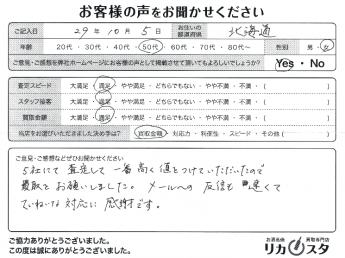 お客様の声をお聞かせください
ご記入日 29年 10月 5日 お住いの都道府県 北海道
年齢 20代・30代・40代・50代・60代・70代・80代〜 性別 男・女
ご意見・ご感想を弊社ホームページにお客様の声として掲載させて頂いてもよろしいでしょうか? Yes・No
査定スピード 大満足・満足・やや満足・どちらでもない・やや不満・不満・( )
スタッフ接客 大満足・満足・やや満足・どちらでもない・やや不満・不満・( )
買取金額 大満足・満足・やや満足・どちらでもない・やや不満・不満・( )
当店をお選びいただきました決め手は? 買取金額・対応力・利便性・スピード・その他( )
ご意見・ご感想などぜひお聞かせください
5社にて査定して一番高く値をつけていただいたので
買取をお願いしました。メールへの返信も速くて
ていねいな対応に感謝です。
ご協力ありがとうございました。
この度は誠にありがとうございました。
お酒名画 買取専門店
リカスタ